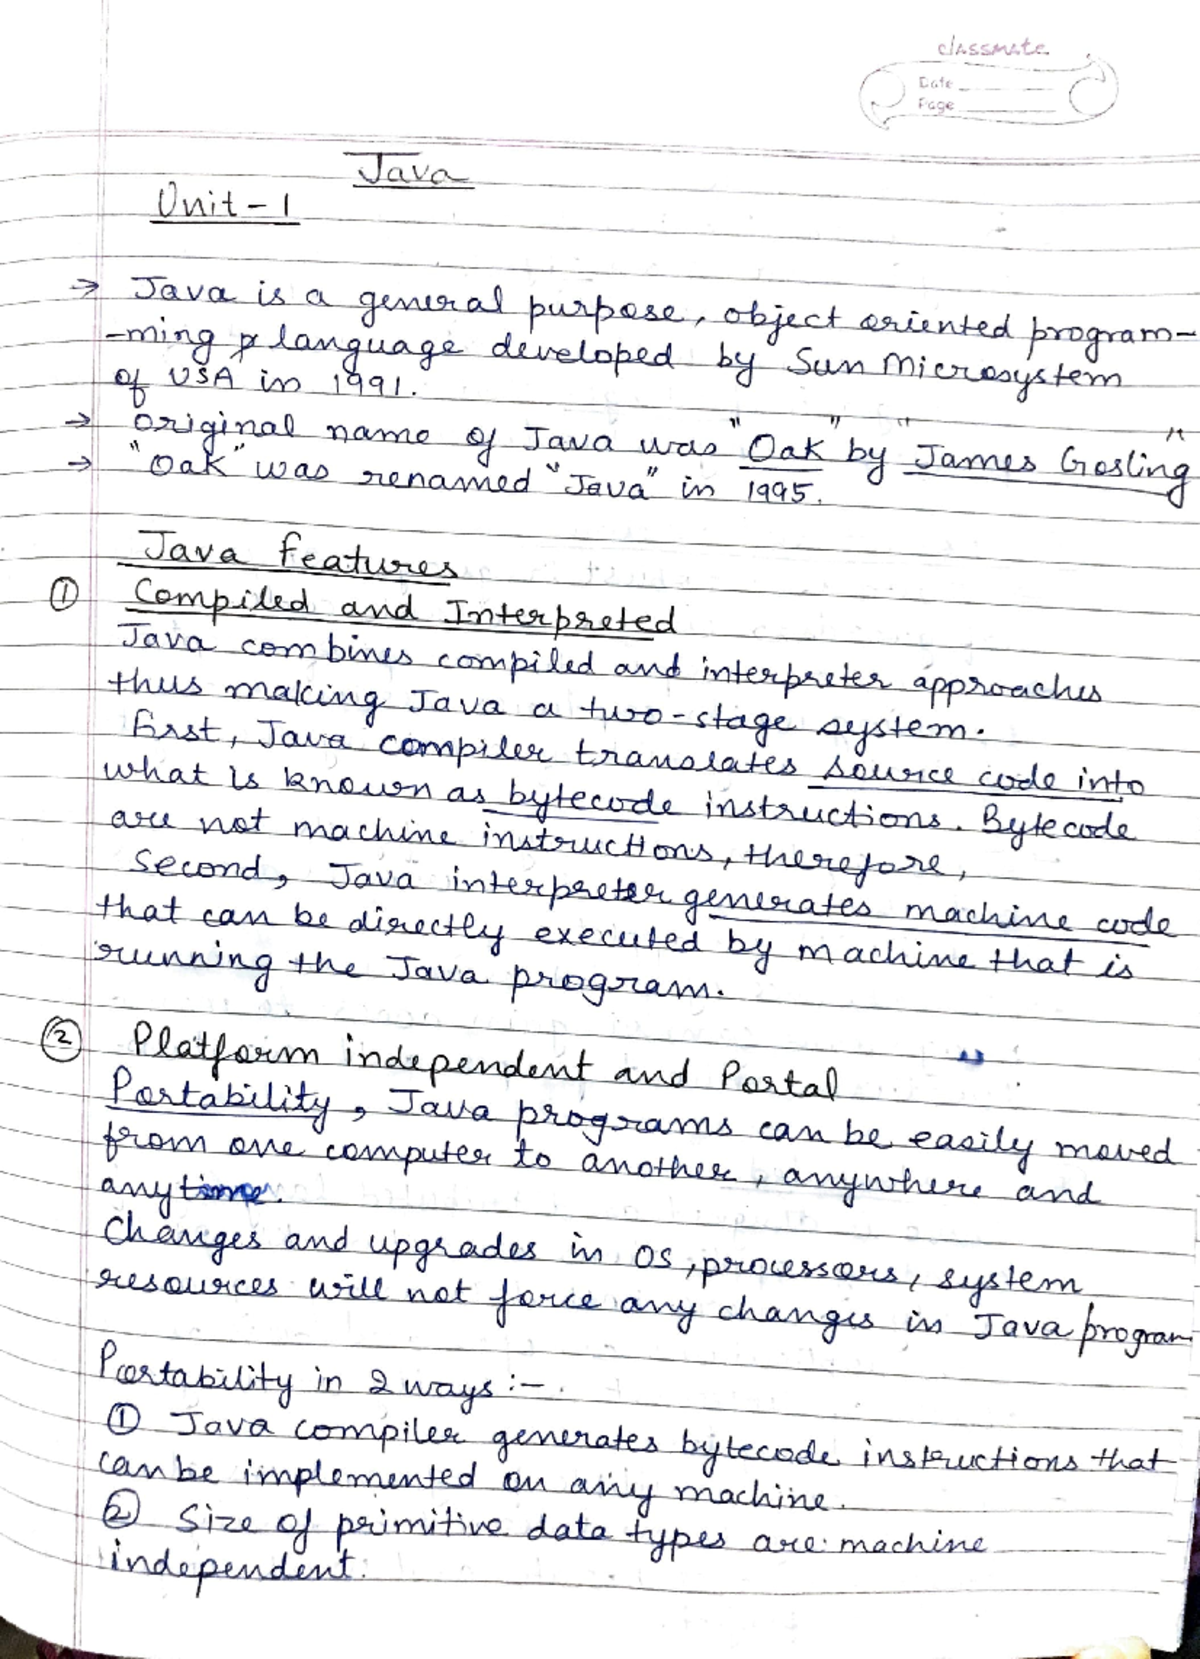 classmate
Date
Page
Java
Unit - 1
→ Java is a general purpose, object oriented program-
-ming language developed by Sun Microsystem
of USA in 1991.
→ Original name of Java was "Oak" by "James Gosling"
→ "Oak" was renamed "Java" in 1995.
Java features
① Compiled and Interpreted
Java combines compiled and interpreter approaches
thus making Java a two-stage system.
first, Java compiler translates source code into
what is known as bytecode instructions. Bytecode
are not machine instructions, therefore,
Second, Java interpreter generates machine code
that can be directly executed by machine that is
running the Java program.
② Platform independent and Portal
Portability, Java programs can be easily moved
from one computer to another, anywhere and
anytime.
Changes and upgrades in OS, processors, system
resources will not force any changes in Java program
Portability in 2 ways :-
① Java compiler generates bytecode instructions that
can be implemented on any machine.
② Size of primitive data types are machine
independent.